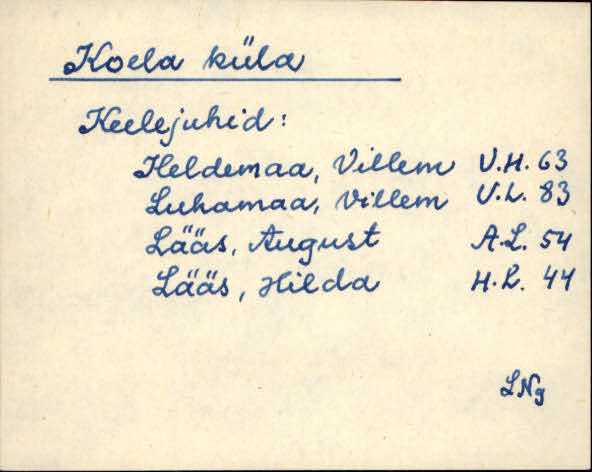 Koela küla
Keelejuhid:
Heldemaa, Villem V.H. 63
Luhamaa, Villem V.L. 83
Lääs, August A.L. 54
Lääs, Hilda H.L. 44
LNg